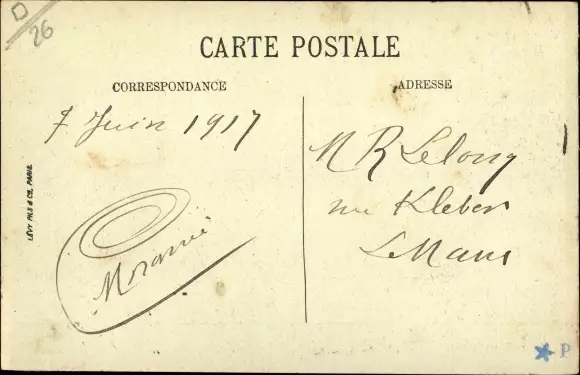 D
26
CARTE POSTALE
CORRESPONDANCE
ADRESSE
7 Juin 1917
M R Lelong
rue Kleber
Le Mans
LÉVY FILS & CIE, PARIS
P